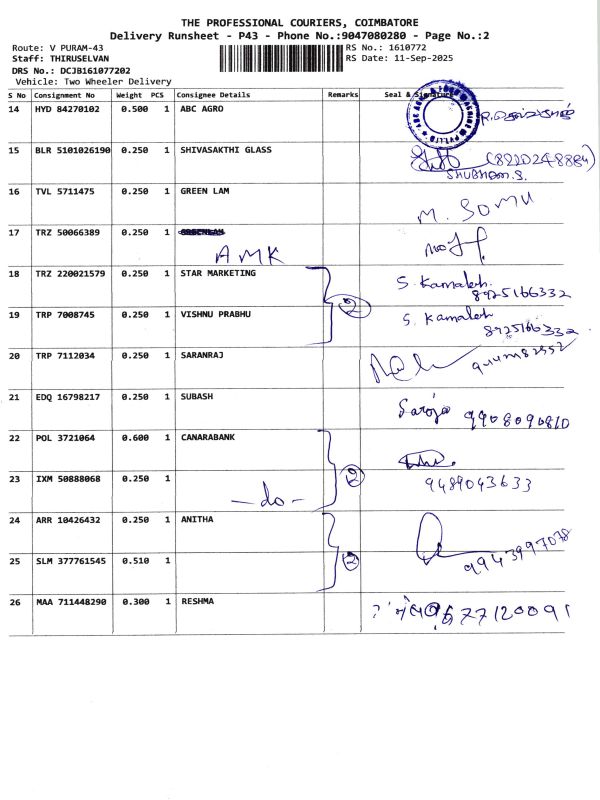 THE PROFESSIONAL COURIERS, COIMBATORE
Delivery Runsheet - P43 - Phone No.:9047080280 - Page No.:2
Route: V PURAM-43
RS No.: 1610772
Staff: THIRUSELVAN
RS Date: 11-Sep-2025
DRS No.: DCJB161077202
Vehicle: Two Wheeler Delivery
S No Consignment No Weight PCS Consignee Details Remarks Seal & Signature
14 HYD 84270102 0.500 1 ABC AGRO
15 BLR 5101026190 0.250 1 SHIVASAKTHI GLASS (8220248884)
SHUBHAM.S.
16 TVL 5711475 0.250 1 GREEN LAM M. SOMU
17 TRZ 50066389 0.250 1 GREENLAM
AMK
18 TRZ 220021579 0.250 1 STAR MARKETING S. Kamalesh
2 8925166332
19 TRP 7008745 0.250 1 VISHNU PRABHU S. Kamalesh
8925166332
20 TRP 7112034 0.250 1 SARANRAJ
21 EDQ 16798217 0.250 1 SUBASH Saroja 9908090810
22 POL 3721064 0.600 1 CANARABANK
23 IXM 50888068 0.250 1 2 9489043633
-do-
24 ARR 10426432 0.250 1 ANITHA
25 SLM 377761545 0.510 1 2 9943997078
26 MAA 711448290 0.300 1 RESHMA 9677120091